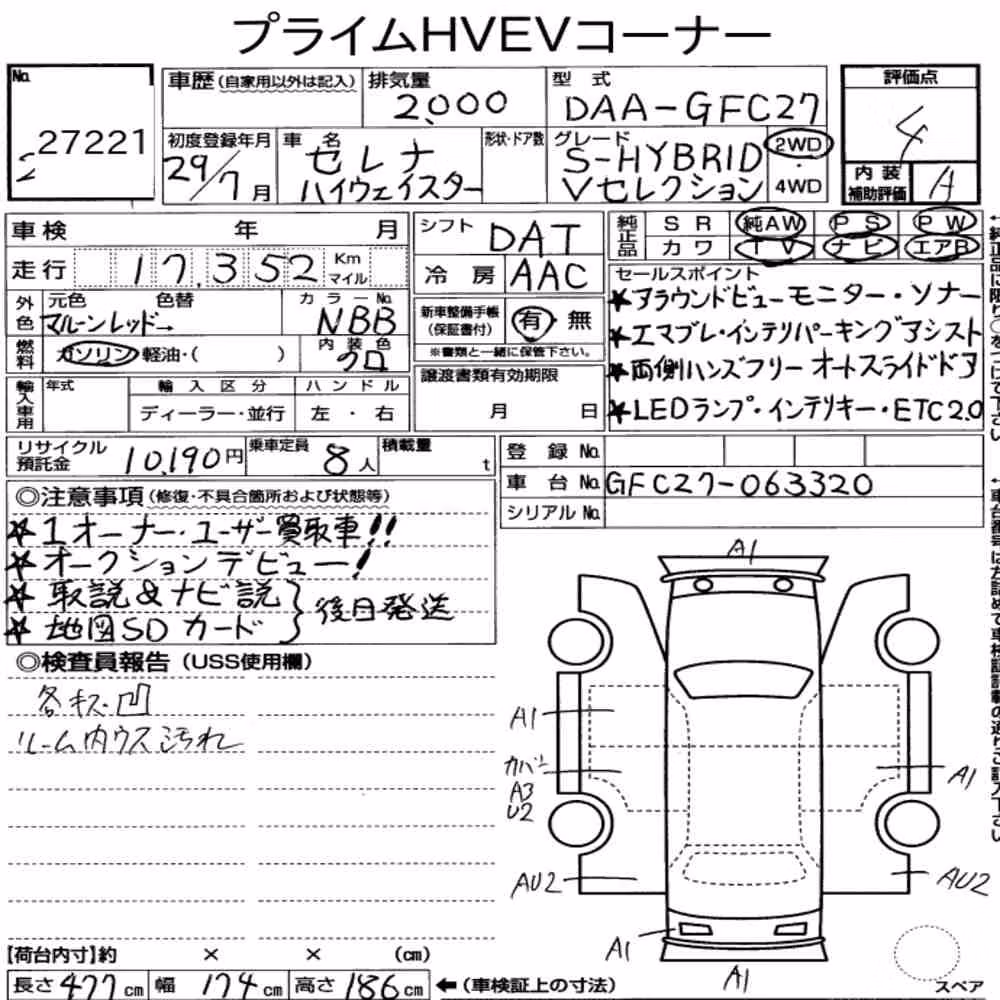 プライムHVEVコーナー
No.
27221
2
車歴 (自家用以外は記入)
排気量
2,000
型式
DAA-GFC27
評価点
4
初度登録年月
29/7月
車名
セレナ
ハイウェイスター
形状・ドア数
グレード
S-HYBRID
Vセレクション
2WD
・
4WD
内装
補助評価
A
車検 年 月
シフト
DAT
純正品
SR 純AW PS PW
カワ TV ナビ エアB
走行 17,352 Km
マイル
冷房 AAC
セールスポイント
★アラウンドビューモニター・ソナー
★エマブレ・インテリパーキングアシスト
★両側ハンズフリーオートスライドドア
★LEDランプ・インテリキー・ETC2.0
外色
元色 色替
マルーンレッド→
カラーNo.
NBB
新車整備手帳
(保証書付)
有・無
※書類と一緒に保管下さい。
燃料
ガソリン 軽油・( )
内装色
クロ
譲渡書類有効期限
月 日
輸入車用
年式
輸入区分
ディーラー・並行
ハンドル
左・右
リサイクル
預託金
10,190円
乗車定員
8人
積載量
t
登録No.
車台No. GFC27-063320
シリアルNo.
◎注意事項(修復・不具合箇所および状態等)
★1オーナー・ユーザー買取車!!
★オークションデビュー!
★取説&ナビ説
★地図SDカード
} 後日発送
◎検査員報告(USS使用欄)
各キズ・凹
ルーム内ウス汚れ
A1
A1
カバー
A3
U2
A1
AU2
AU2
A1
A1
スペア
【荷台内寸】約 × × (cm)
長さ477cm 幅174cm 高さ186cm ←(車検証上の寸法)
↑純正品に限り○をつけて下さい